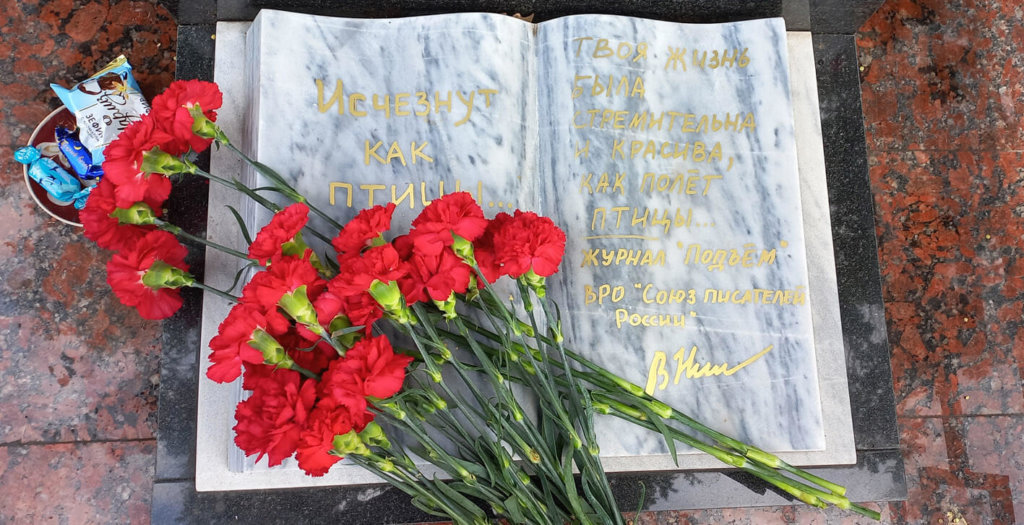 Исчезнут
как
птицы...
ТВОЯ ЖИЗНЬ
БЫЛА
СТРЕМИТЕЛЬНА
И КРАСИВА,
КАК ПОЛЁТ
ПТИЦЫ...
ЖУРНАЛ "Подъём"
ВРО "Союз писателей
России"